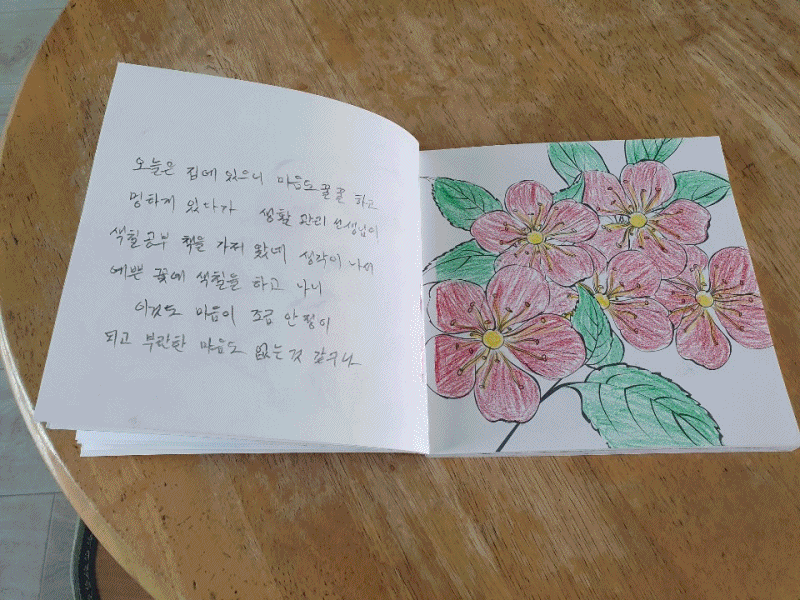 오늘은 집에 있으니 마음도 꿀꿀 하고
멍하게 있다가 생활 관리 선생님이
색칠공부 책을 가져 왔네 생각이 나서
예쁜 꽃에 색칠을 하고 나니
이것도 마음이 조금 안정이
되고 부란한 마음도 없는것 같구나